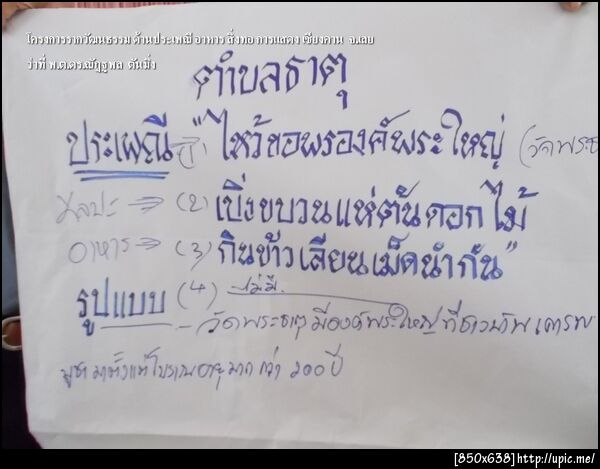 โครงการรากวัฒนธรรม ด้านประเพณี อาหาร สิ่งทอ การแสดง เชียงคาน จ.เลย
ว่าที่ พ.ต.ดร.ณัฏฐพล ตันมิ่ง
ตำบลธาตุ
ประเพณี (1) "ไหว้ขอพรองค์พระใหญ่ (วัดพระธ
ศิลปะ → (2) เบิ่งขบวนแห่ต้นดอกไม้
อาหาร ⇒ (3) กินข้าวเลียนเม็ดนำกัน"
รูปแบบ (4) ไม่มี
- วัดพระธาตุมีองค์พระใหญ่ที่ชาวบ้านเคารพ
บูชามาตั้งแต่โบราณอายุมากกว่า ๒๐๐ ปี
[850x638]http://upic.me/